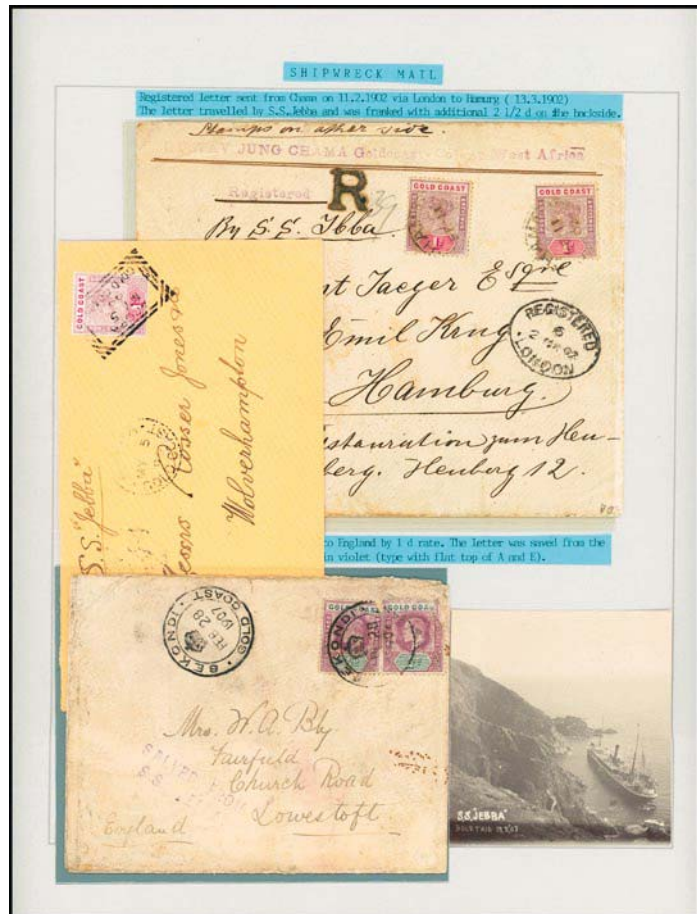 SHIPWRECK MAIL
Registered letter sent from Chama on 11.2.1902 via London to Hamurg ( 13.3.1902)
The letter travelled by S.S.Jebba and was franked with additional 2 1/2 d on the backside.
Stamps on other side.
JUNG CHAMA West Africa
Registered R
By S.S. Jbba.
GOLD COAST
GOLD COAST
nt Jaeger Esqre
Emil Krug
Hamburg.
REGISTERED
6
LONDON
estauration zum Heu-
berg. Heuberg 12.
GOLD COAST
S.S. "Jebba"
Messrs Rosser Jones &
Wolverhampton
to England by 1 d rate. The letter was saved from the
in violet (type with flat top of A and E).
SEKONDI
GOLD COAST
FEB 28
1907
Mrs. W.A. Bly
Fairfield
Church Road
Lowestoft
England
S.S.
S.S. "JEBBA"